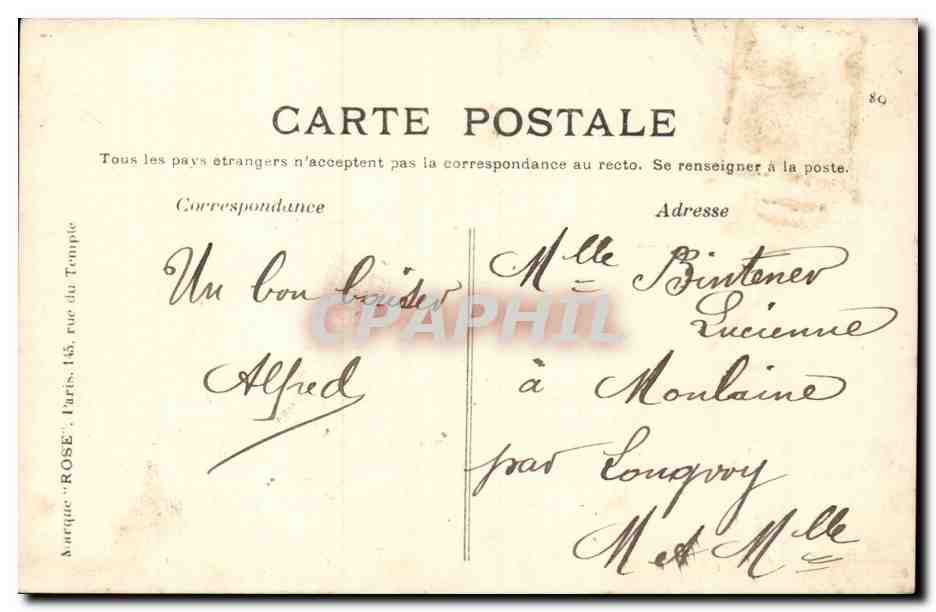 89
CARTE POSTALE
Tous les pays étrangers n'acceptent pas la correspondance au recto. Se renseigner à la poste.
Correspondance
Un bon baiser
Alfred
Adresse
Mlle Bintener
Lucienne
à Moulaine
par Longwy
M et Mlle
Marque "ROSE", Paris, 145, rue du Temple
CPAPHIL